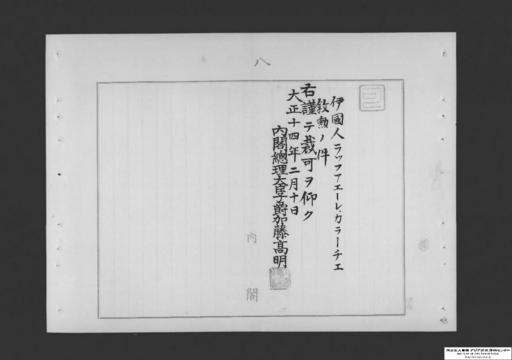 八
伊國人ラッファエーレ、カラーチェ
敍勲ノ件
右謹テ裁可ヲ仰ク
大正十四年二月十日
內閣總理大臣子爵加藤高明
內閣